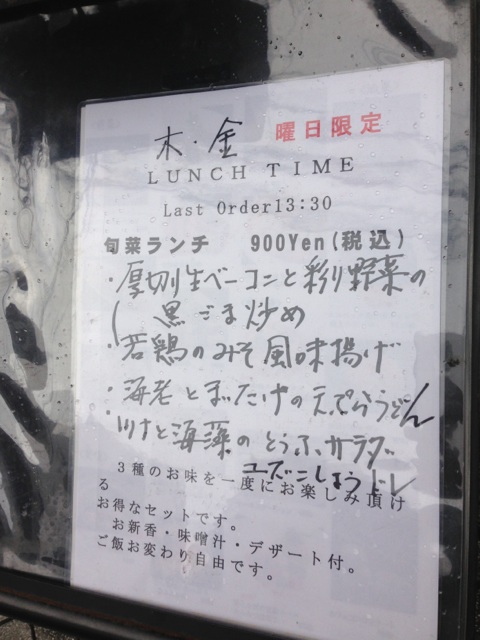 木・金 曜日限定
LUNCH TIME
Last Order13:30
旬菜ランチ 900Yen(税込)
・厚切り生ベーコンと彩り野菜の
黒ごま炒め
・若鶏のみそ風味揚げ
・海老とまいたけの天ぷらうどん
・ツナと海藻のとうふサラダ
ユズこしょうドレ
3種のお味を一度にお楽しみ頂け
る
お得なセットです。
お新香・味噌汁・デザート付。
ご飯お変わり自由です。